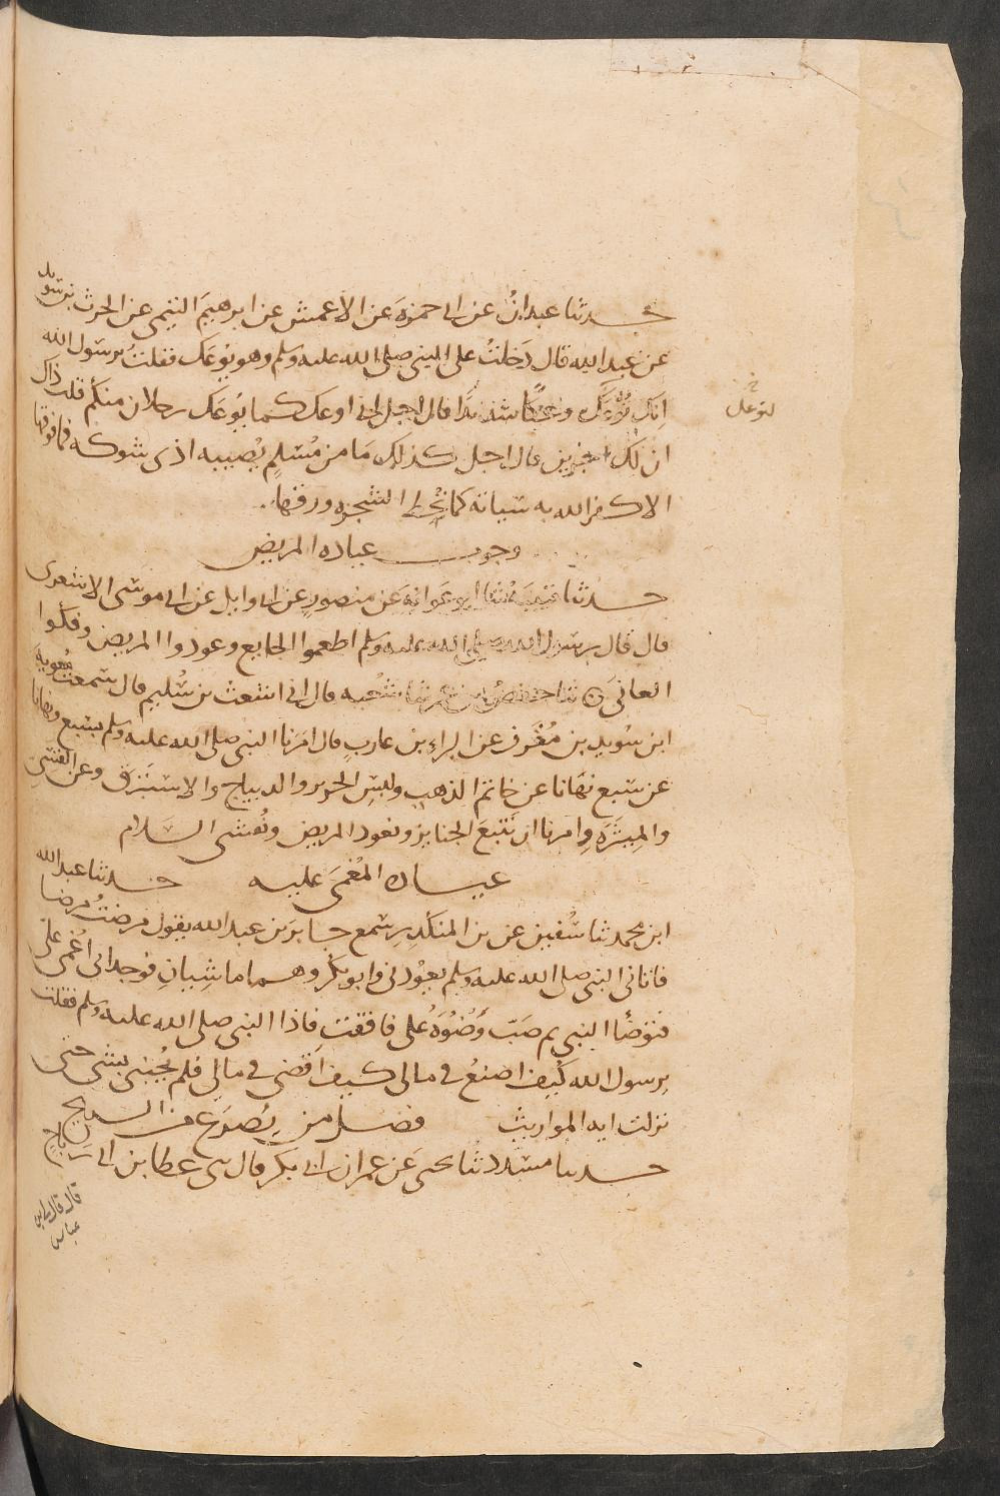 حدثنا عبدان عن ابى حمزة عن الأعمش عن ابرهيم التيمى عن الحرث بن سويد
عن عبد الله قال دخلت على النبى صلى الله عليه وسلم وهو يوعك فقلت يرسول الله
انك توعك وعكا شديدا قال اجل انى اوعك كما يوعك رجلان منكم قلت ذاك
خ
لتوعك
ان لك اجرين قال اجل كذلك ما من مسلم يصيبه اذى شوكه فما فوقها
الا كفر الله به سياته كما تحط الشجره ورقها
وجوب عياده المريض
حدثنا قتيبة ثنا ابو عوانة عن منصور عن ابى وايل عن ابى موسى الاشعرى
قال قال رسول الله صلى الله عليه وسلم اطعموا الجايع وعودوا المريض وفكوا
العانى ثنا حفص بن عمر ثنا شعبه قال انى اشعث بن سليم قال سمعت معويه
ابن سويد بن مقرن عن البراء بن عازب قال امرنا النبى صلى الله عليه وسلم بسبع ونهانا
عن سبع نهانا عن خاتم الذهب ولبس الحرير والديباج والاستبرق وعن القسى
والميثرة وامرنا ان نتبع الجنايز ونعود المريض ونفشى السلام
عياده المغمى عليه حدثنا عبد الله
ابن محمد ثنا سفين عن بن المنكدر سمع جابر بن عبد الله يقول مرضت مرضا
فاتانى النبى صلى الله عليه وسلم يعودنى وابو بكر وهما ماشيان فوجدانى اغمى على
فتوضأ النبى ثم صب وضوءه على فافقت فاذا النبى صلى الله عليه وسلم فقلت
يرسول الله كيف اصنع فى مالى كيف اقضى فى مالى فلم يجبنى بشى حتى
نزلت ايه المواريث فضل من يصرع من الريح
حدثنا مسدد ثنا يحيى عن عمران ابى بكر قال ثنى عطا بن ابى رباح
قال قال لى ابن
عباس